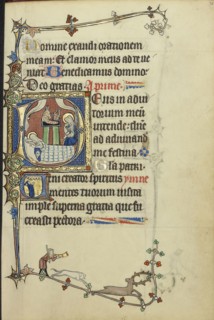 Domine exaudi orationem
meam: Et clamor meus ad te ve
niat. Benedicamus domino:
Deo gratias. A prime.
Deus in adiu
torium meū
intende: dñe
ad adiuuand
me festina
Gla patri.
Ueni creator spiritus ymne
mentes tuorum uisita
imple superna gratia que tu
creasti pectora.